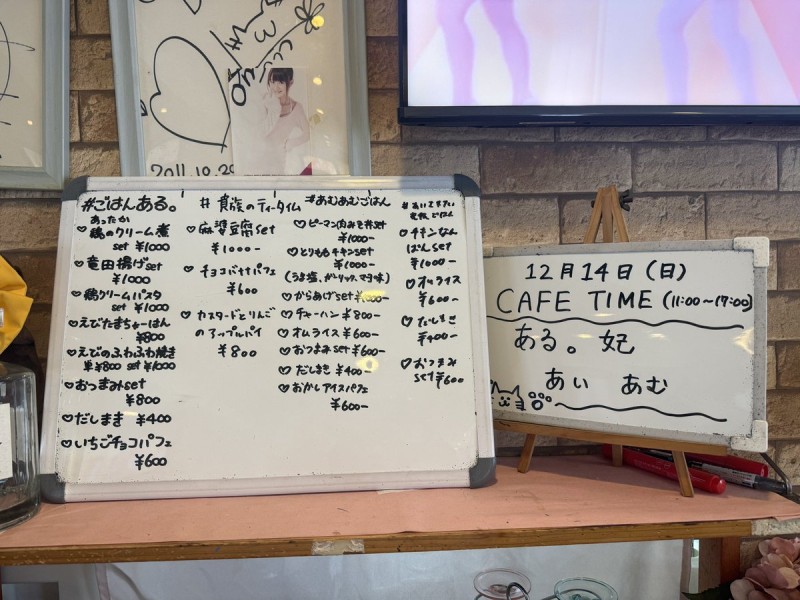 2011.10.20
#ごはんある。
あったか
♡鶏のクリーム煮
set ¥1000
♡竜田揚げset
¥1000
♡鶏クリームパスタ
set ¥1000
♡えびたまちゃーはん
¥800
♡えびのふわふわ焼き
単¥800 set ¥1000
♡おつまみset
¥800
♡だしまき ¥400
♡いちごチョコパフェ
¥600
#貴族のティータイム
♡麻婆豆腐set
¥1000-
♡チョコバナナパフェ
¥600
♡カスタードとりんご
のアップルパイ
¥800
#あむあむごはん
♡ピーマン肉みそ丼set
¥1000-
♡とりももチキンset
¥1000-
(うま塩、ガーリック、マヨ味)
♡からあげset¥1000-
♡チャーハン¥800-
♡オムライス¥600-
♡おつまみset¥600-
♡だしまき¥400-
♡おかしアイスパフェ
¥600-
♡チキンなん
ばんset
¥1000-
♡オムライス
¥600-
♡だしまき
¥400-
♡おつまみ
set¥600
12月14日(日)
CAFE TIME (11:00~17:00)
ある。妃
あい あむ